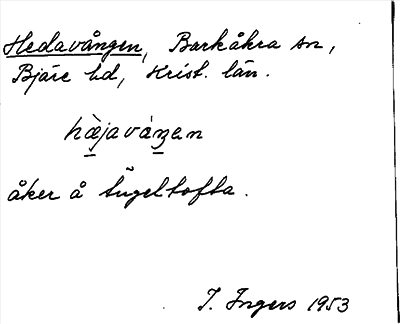 Hedavången, Barkåkra sn,
Bjäre hd, Krist. län.
hæ̀javáŋen
åker å Tûgeltofta.
I. Ingers 1953